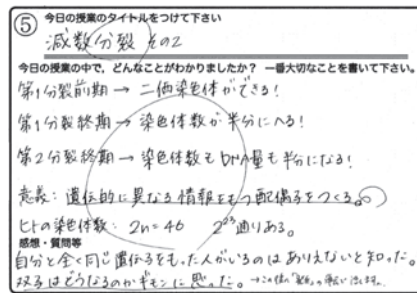 ⑤ 今日の授業のタイトルをつけて下さい
減数分裂 その2
今日の授業の中で、どんなことがわかりましたか? 一番大切なことを書いて下さい。
第1分裂前期→ 二価染色体ができる!
第1分裂終期→ 染色体数が半分にへる!
第2分裂終期→ 染色体数もDNA量も半分になる!
意義: 遺伝的に異なる情報をもつ配偶子をつくる。
ヒトの染色体数: 2n=46 2²³通りある。
感想・質問等
自分と全く同じ遺伝子をもった人がいるのはありえないと知った。
双子はどうなるのかギモンに思った。 →この後の